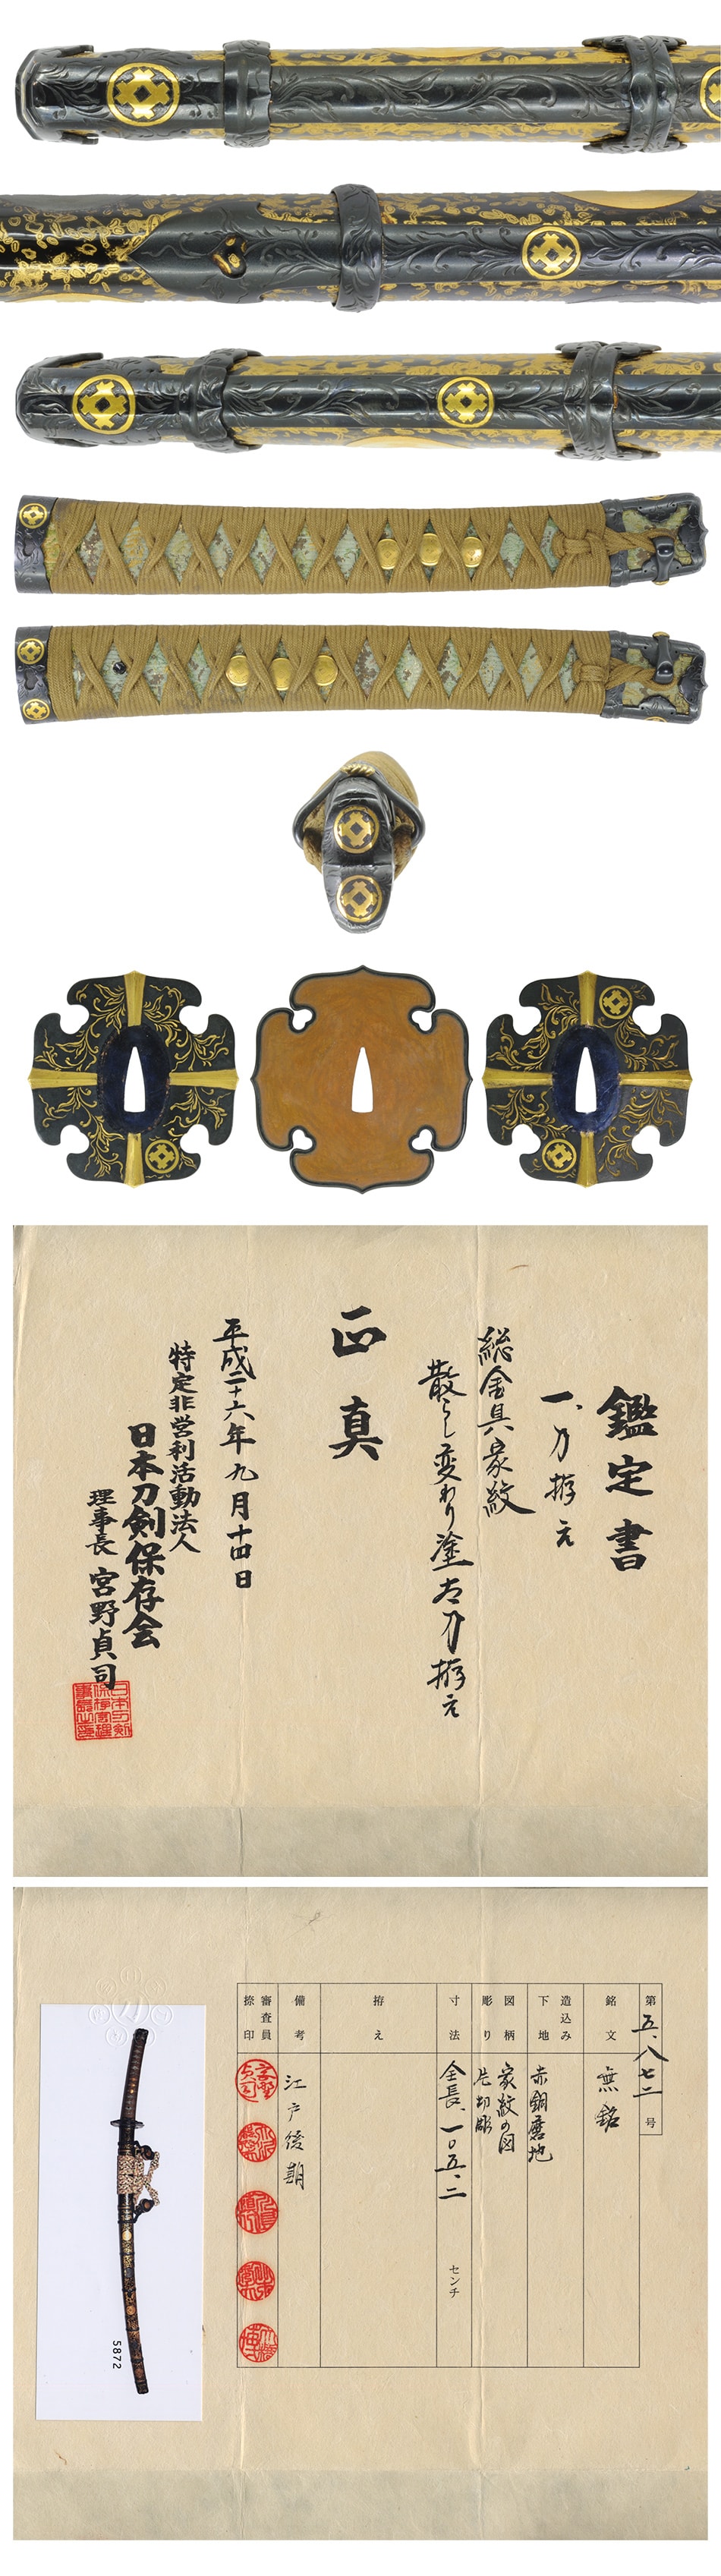 鑑定書
一、刀拵え
総金具家紋
散らし変わり塗太刀拵え
正真
平成二十六年九月十四日
特定非営利活動法人
日本刀剣保存会
理事長 宮野貞司
第五、八七二号
銘文 無銘
造込み 下地 赤銅磨地
図柄 彫り 家紋の図 片切彫
寸法 全長、一〇五、二 センチ
拵え
備考 江戸後期
審査員 捺印
5872